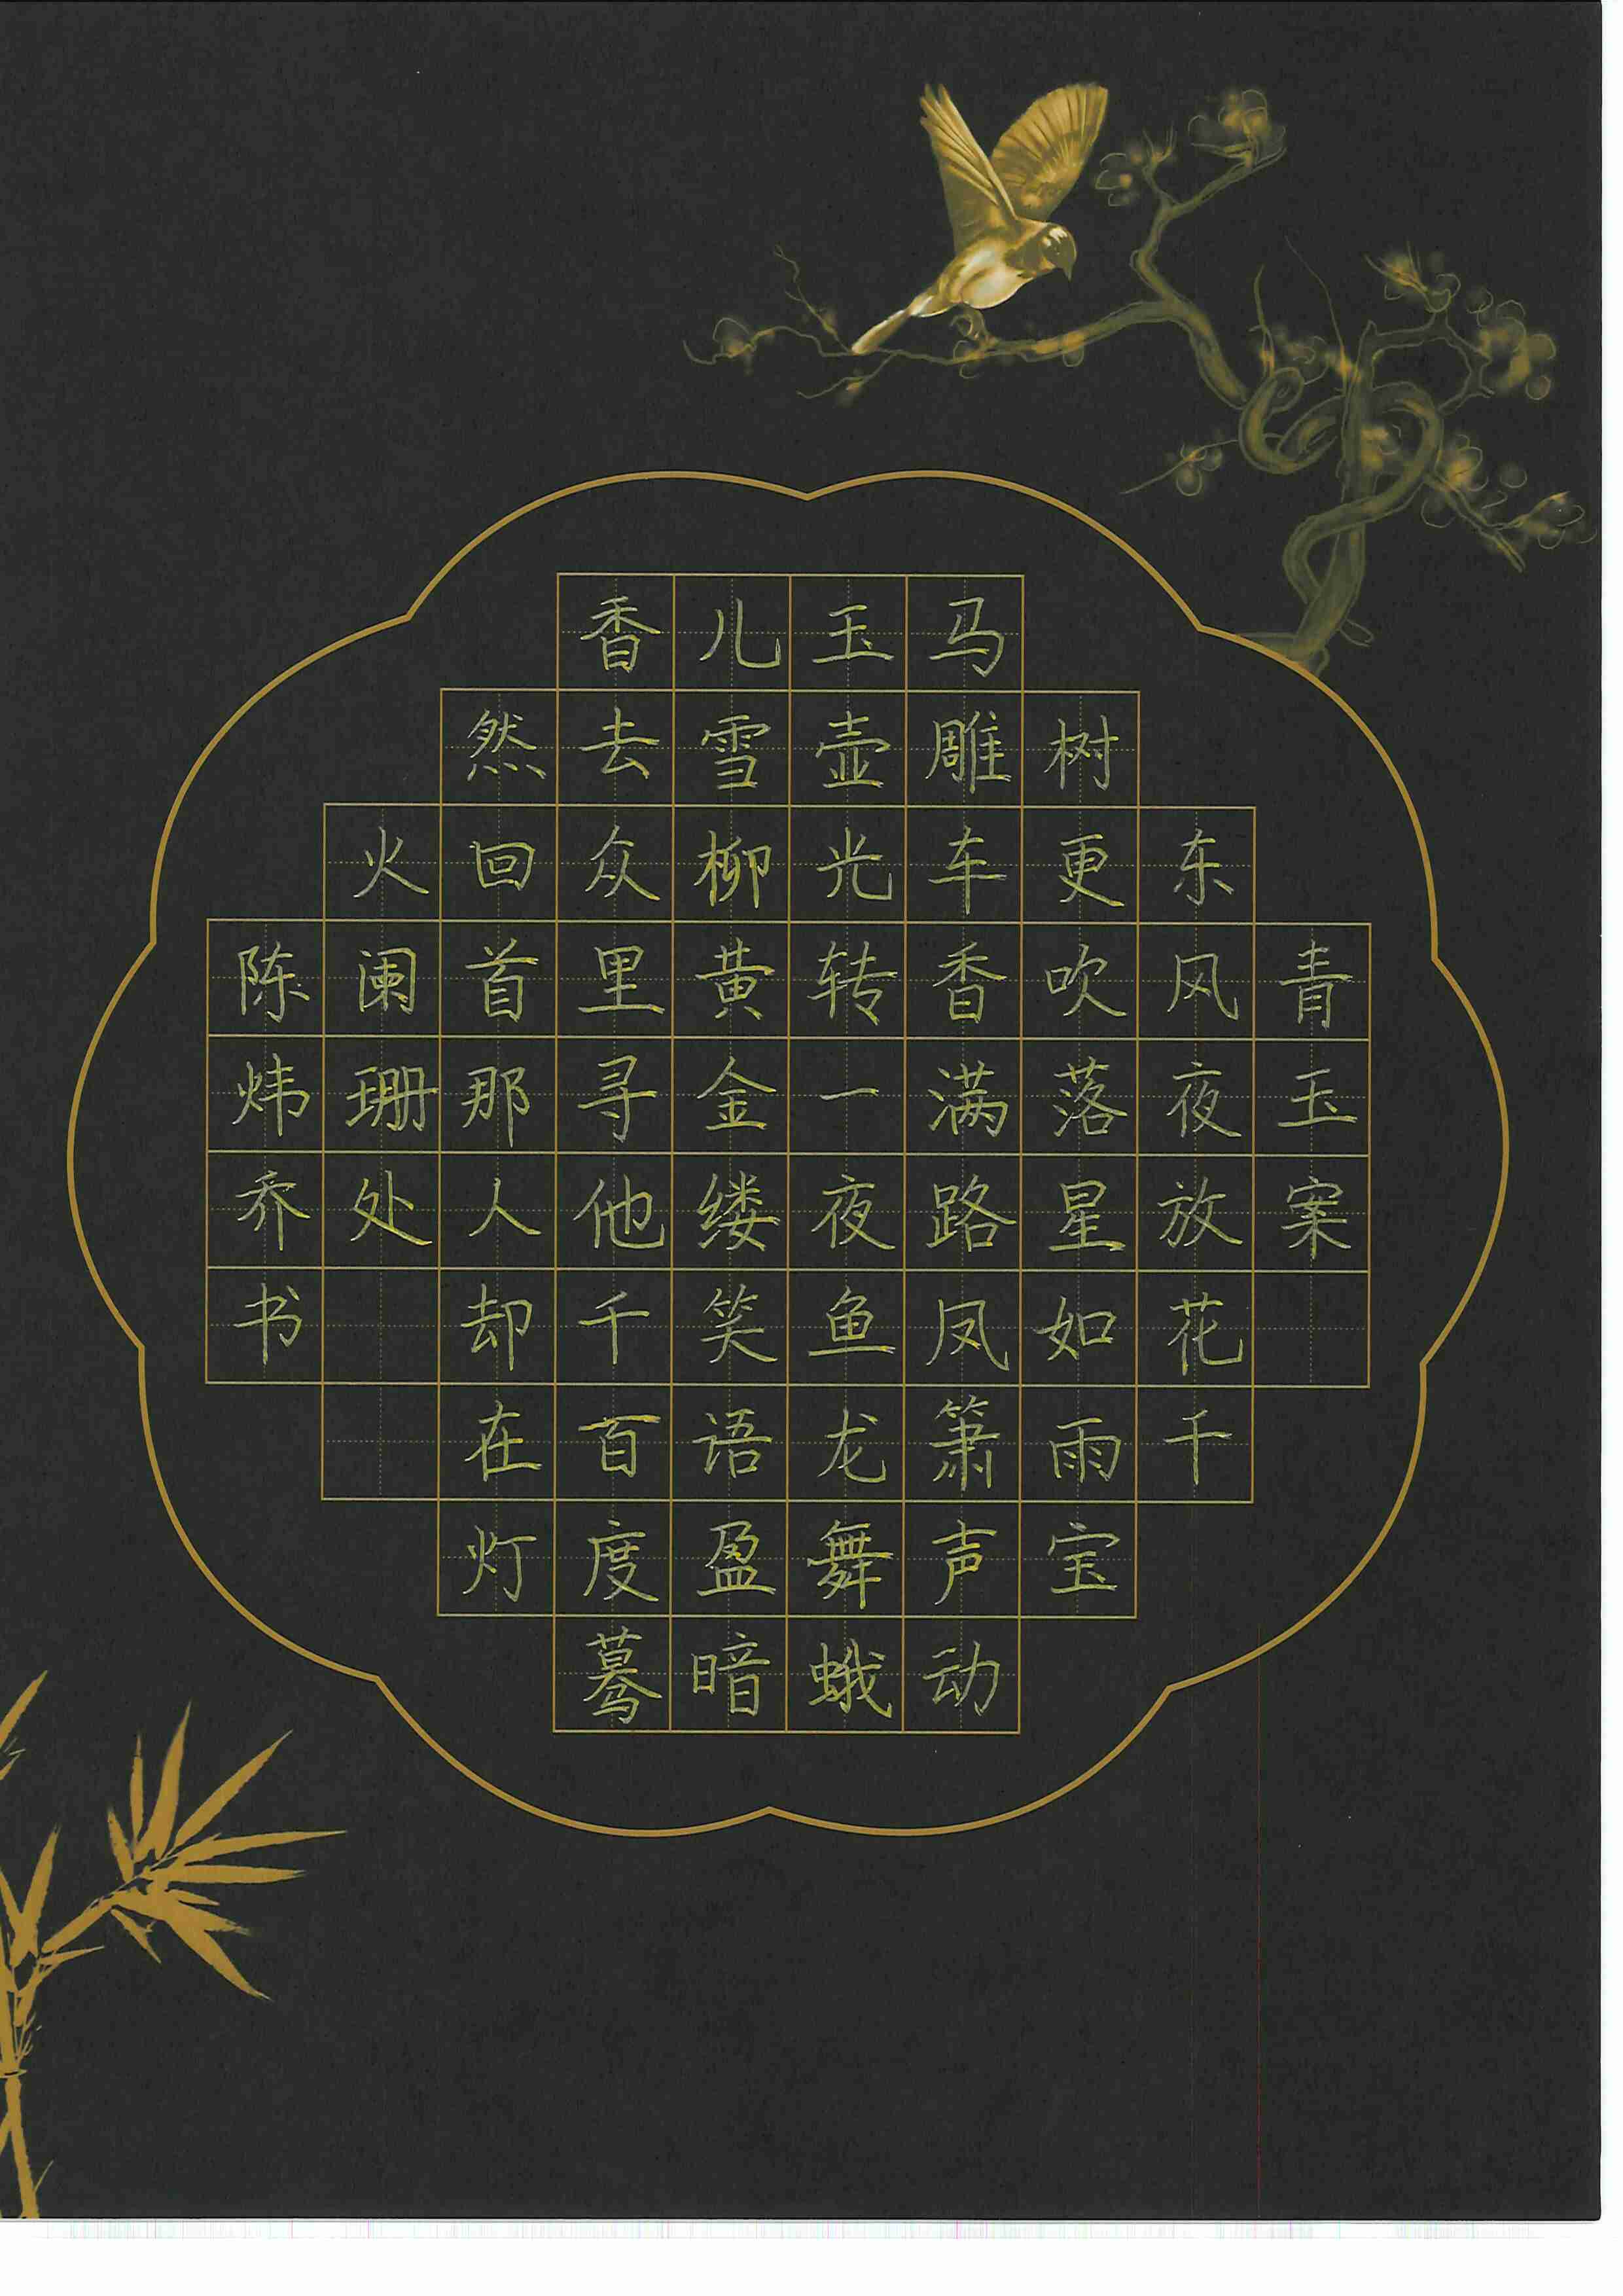 青玉案
东风夜放花千
树更吹落星如雨宝
马雕车香满路凤箫声动
玉壶光转一夜鱼龙舞蛾
儿雪柳黄金缕笑语盈暗
香去众里寻他千百度蓦
然回首那人却在灯
火阑珊处
陈炜乔书